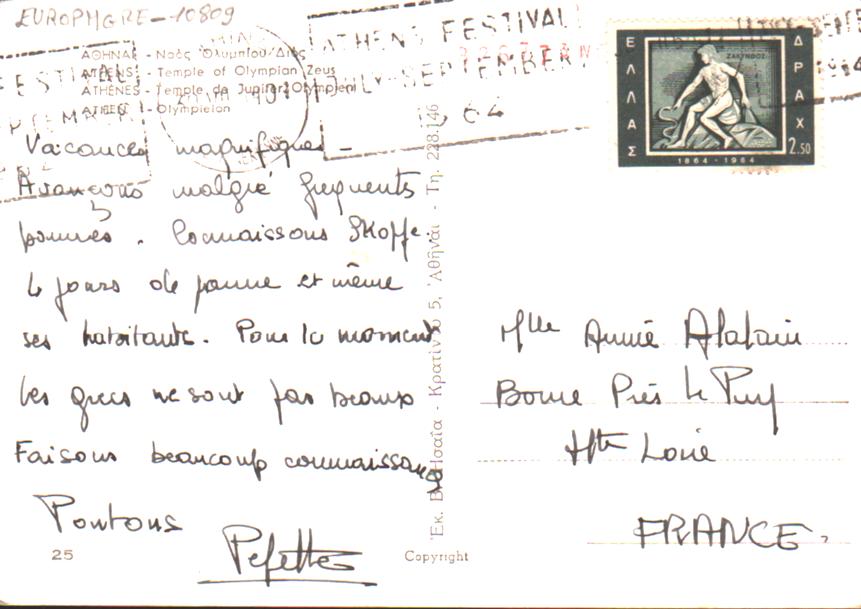 EUROPHGRE-10809
ΑΘΗΝΑΙ - Ναός Ὀλυμπίου Διός
ATHENS - Temple of Olympian Zeus
ATHÈNES - Temple de Jupiter Olympien
ATHEN - Olympieion
ATHENS FESTIVAL
JULY-SEPTEMBER
1964
ΕΛΛΑΣ
ΔΡΑΧ
2.50
ΖΑΚΥΝΘΟΣ
1864 - 1964
Vacances magnifiques -
Avançons malgré frequents
pannes. Connaissons Skopje
4 jours de panne et même
ses habitants. Pour le moment
les grecs ne sont pas beaux
Faisons beaucoup connaissance
Pontons
Pepette
Mlle Annie
Borne Près Le Puy
Hte Loire
FRANCE.
25
Copyright
Τη. 228.146